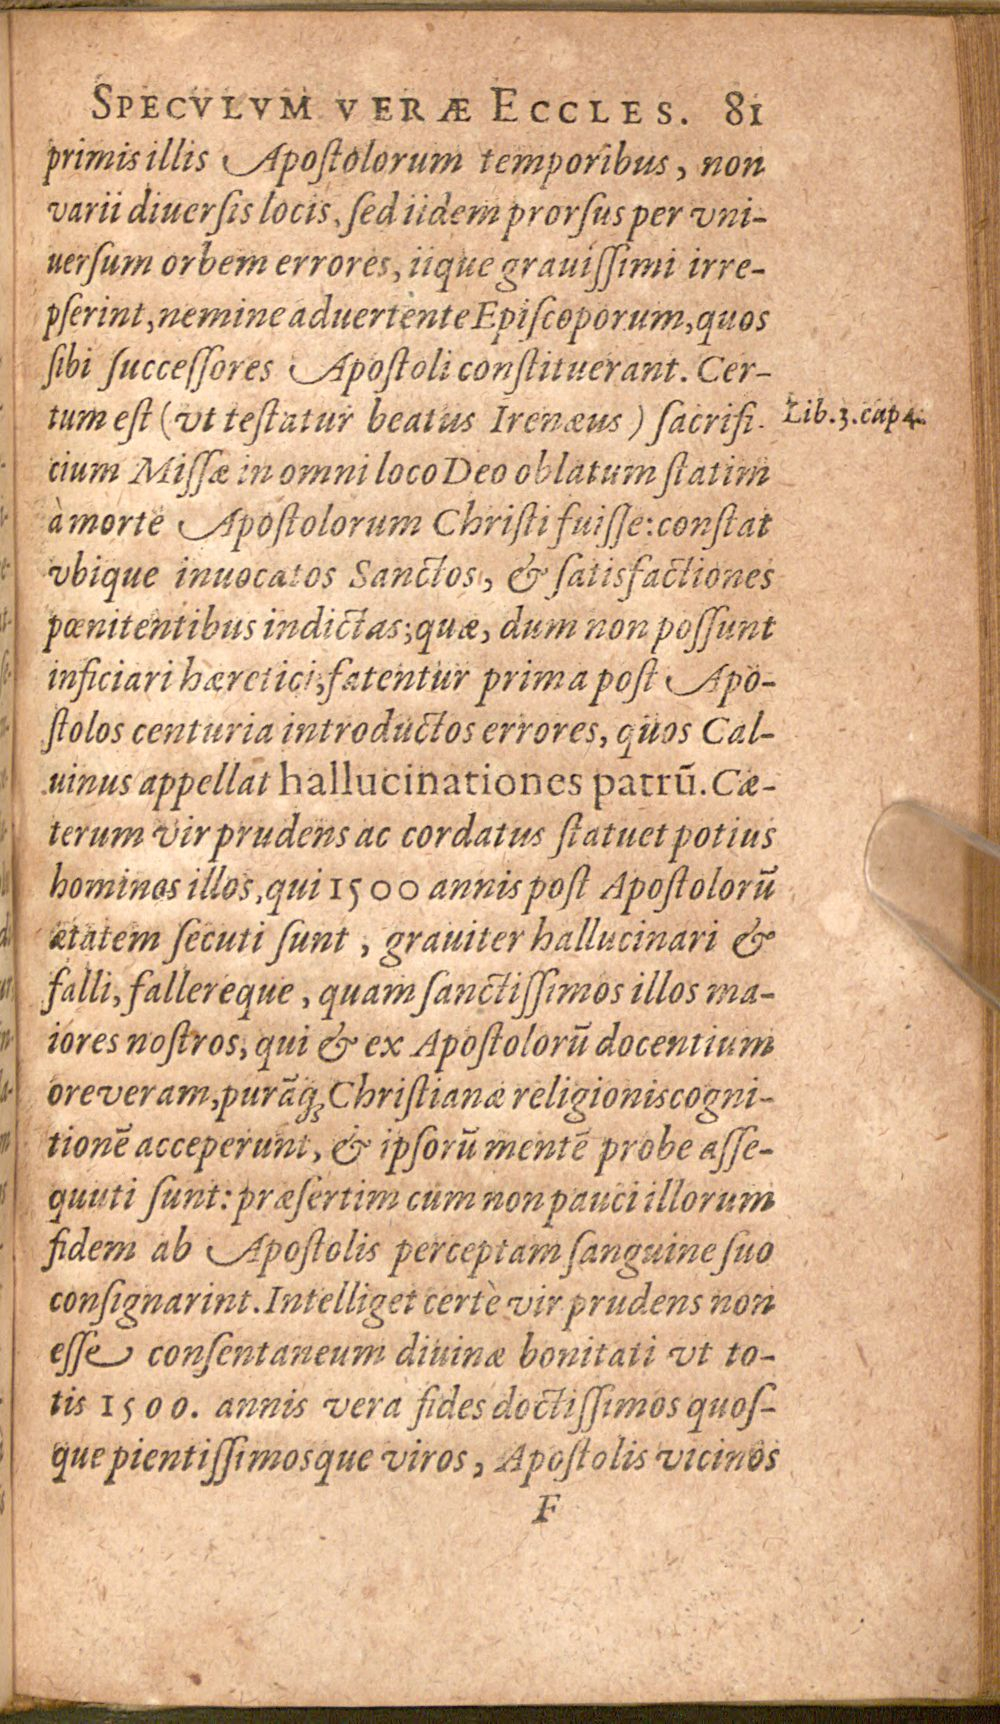 SPECVLVM VERÆ ECCLES. 81
primis illis Apoſtolorum temporibus, non
varii diuerſis locis, ſed iidem prorſus per vni-
uerſum orbem errores, iique grauiſſimi irre-
pſerint, nemine aduertente Epiſcoporum, quos
ſibi ſucceſſores Apoſtoli conſtituerant. Cer-
tum eſt (vt teſtatur beatus Irenæus) ſacrifi-
Lib. 3. cap 4.
cium Miſſæ in omni loco Deo oblatum ſtatim
à morte Apoſtolorum Chriſti fuiſſe: conſtat
vbique inuocatos Sanctos, & ſatisfactiones
pœnitentibus indictas; quæ, dum non poſſunt
inficiari hæretici, fatentur prima poſt Apo-
ſtolos centuria introductos errores, quos Cal-
uinus appellat hallucinationes patrū. Cæ-
terum vir prudens ac cordatus ſtatuet potius
homines illos, qui 1500 annis poſt Apoſtolorū
ætatem ſecuti ſunt, grauiter hallucinari &
falli, fallereque, quam ſanctiſſimos illos ma-
iores noſtros, qui & ex Apoſtolorū docentium
ore veram, purāq; Chriſtianæ religionis cogni-
tionē acceperunt, & ipſorū mentē probe aſſe-
quuti ſunt: præſertim cum non pauci illorum
fidem ab Apoſtolis perceptam ſanguine ſuo
conſignarint. Intelliget certè vir prudens non
eſſe conſentaneum diuinæ bonitati vt to-
tis 1500. annis vera fides doctiſſimos quoſ-
que pientiſſimosque viros, Apoſtolis vicinos
F